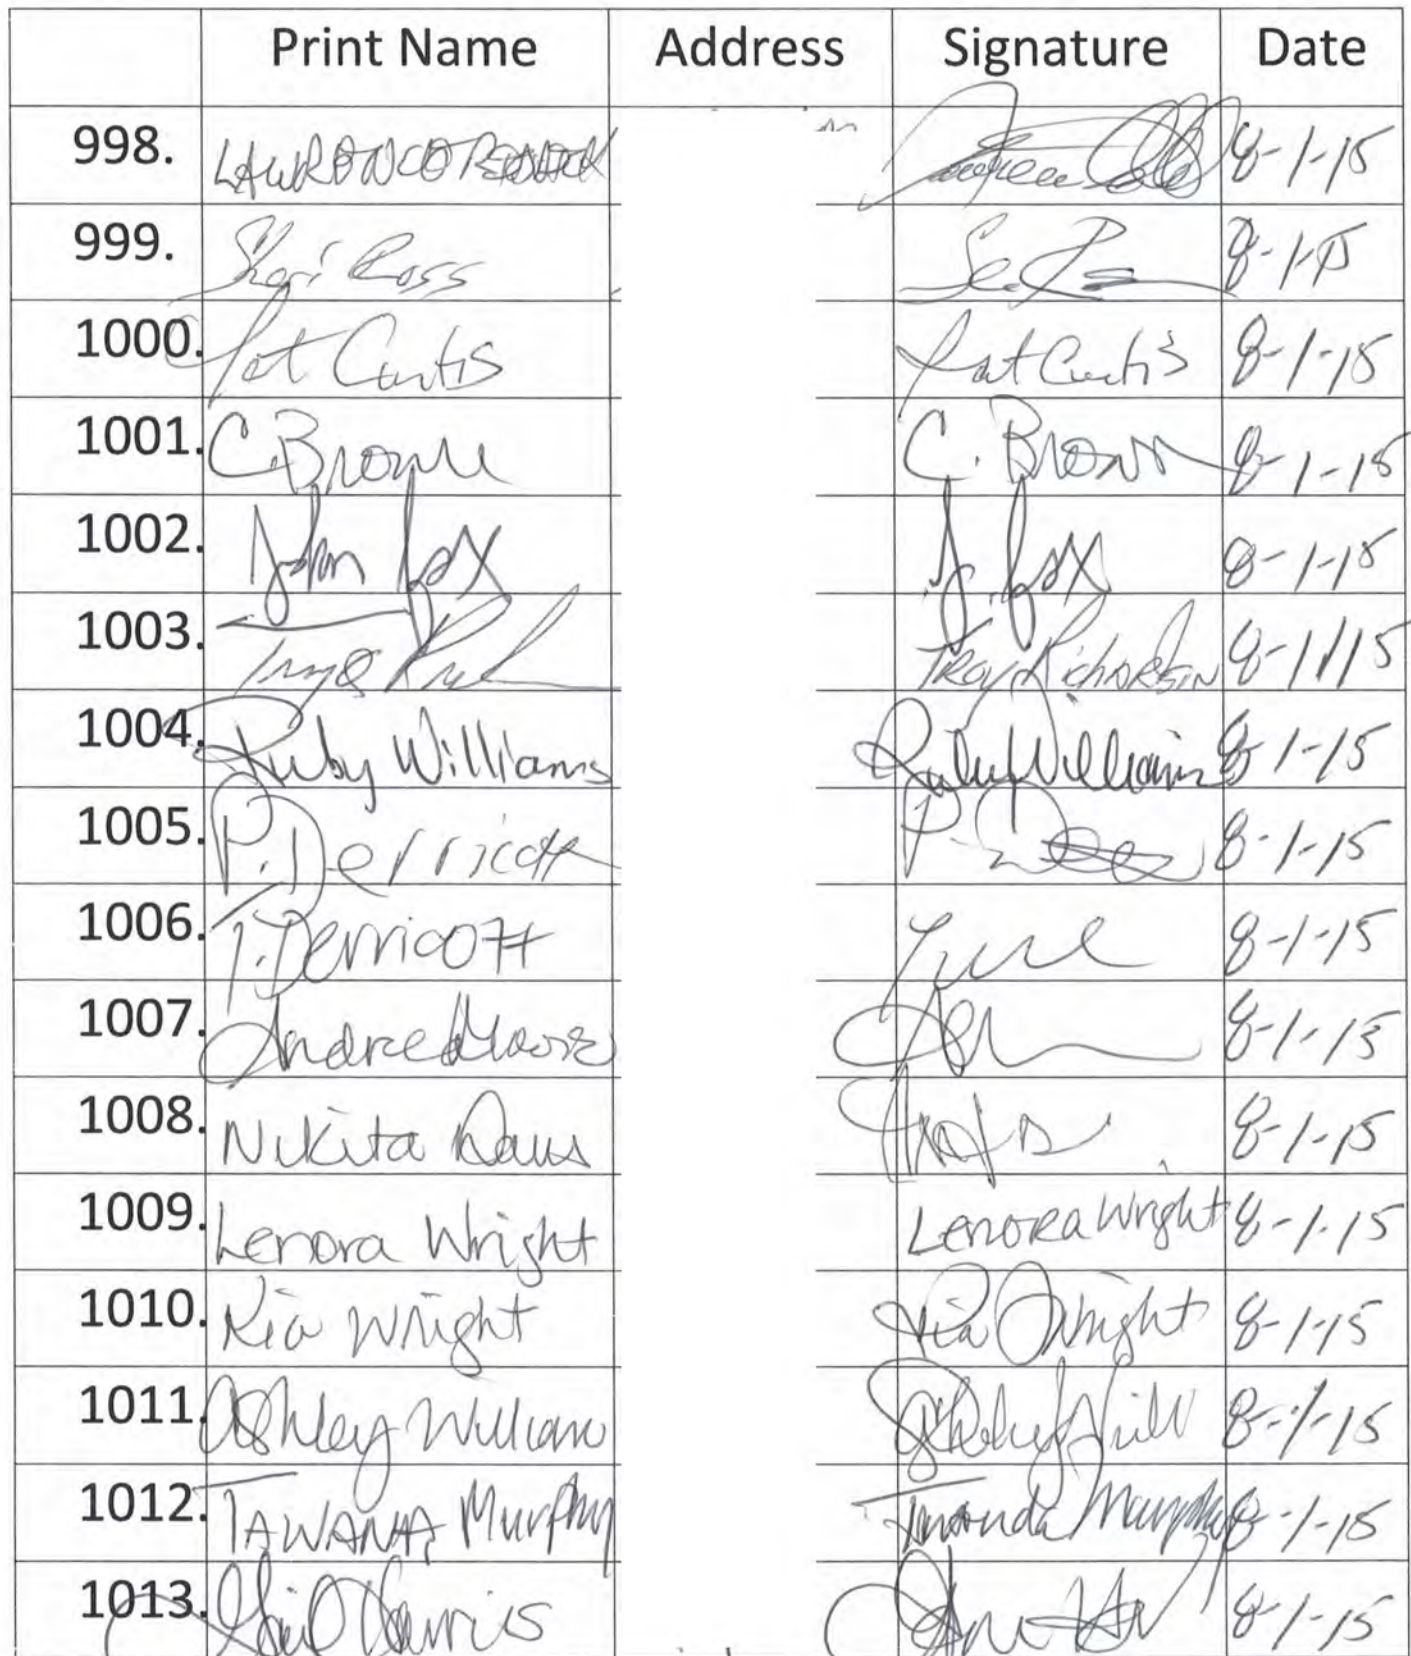 Print Name Address Signature Date
998. LAWRONCO 8-1-15
999. Sheri Ross 8-1-15
1000. Pat Curtis Pat Curtis 8-1-15
1001. C. Brown C. Brown 8-1-15
1002. John Fox J. Fox 8-1-15
1003. Troy Richardson 8-1-15
1004. Ruby Williams Ruby Williams 8-1-15
1005. P. Derricott 8-1-15
1006. T. Derricott 8-1-15
1007. Andre Moore 8-1-15
1008. Nikita Davis 8-1-15
1009. Lenora Wright Lenora Wright 8-1-15
1010. Kia Wright Kia Wright 8-1-15
1011. Ashley William 8-1-15
1012. TAWANA Murphy Murphy 8-1-15
1013. Gail Harris 8-1-15